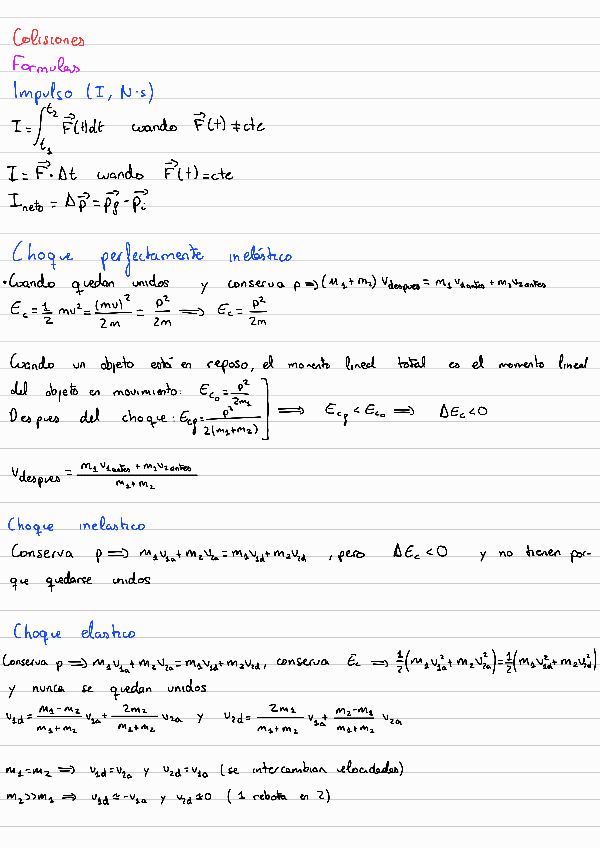 Colisiones
Formulas
Impulso (I, N·s)
I = ∫_{t₁}^{t₂} F⃗(t)dt cuando F⃗(t) ≠ cte
I = F⃗ · Δt cuando F⃗(t) = cte
I_neto = Δp⃗ = p⃗_f - p⃗_i
Choque perfectamente inelástico
·Cuando quedan unidos y conserva p ⟹ (m₁+m₂) v_despues = m₁ v₁antes + m₂v₂antes
E_c = 1/2 mv² = (mv)²/2m = p²/2m ⟹ E_c = p²/2m
Cuando un objeto está en reposo, el momento lineal total es el momento lineal
del objeto en movimiento: E_c₀ = p²/2m₁
Despues del choque: E_cf = p²/2(m₁+m₂) ] ⟹ E_cf < E_co ⟹ ΔE_c < 0
v_despues = (m₁ v₁antes + m₂v₂antes)/(m₁+m₂)
Choque inelastico
Conserva p ⟹ m₁v₁ₐ + m₂v₂ₐ = m₁v₁d + m₂v₂d , pero ΔE_c < 0 y no tienen por-
que quedarse unidos
Choque elastico
Conserva p ⟹ m₁v₁ₐ + m₂v₂ₐ = m₁v₁d + m₂v₂d, conserva E_c ⟹ 1/2(m₁v₁ₐ² + m₂v₂ₐ²) = 1/2(m₁v₁d² + m₂v₂d²)
y nunca se quedan unidos
v₁d = (m₁-m₂)/(m₁+m₂) v₁ₐ + 2m₂/(m₁+m₂) v₂ₐ y v₂d = 2m₁/(m₁+m₂) v₁ₐ + (m₂-m₁)/(m₁+m₂) v₂ₐ
m₁=m₂ ⟹ v₁d = v₂ₐ y v₂d = v₁ₐ (se intercambian velocidades)
m₂>>m₁ ⟹ v₁d ≃ -v₁ₐ y v₂d ≃ 0 (1 rebota en 2)